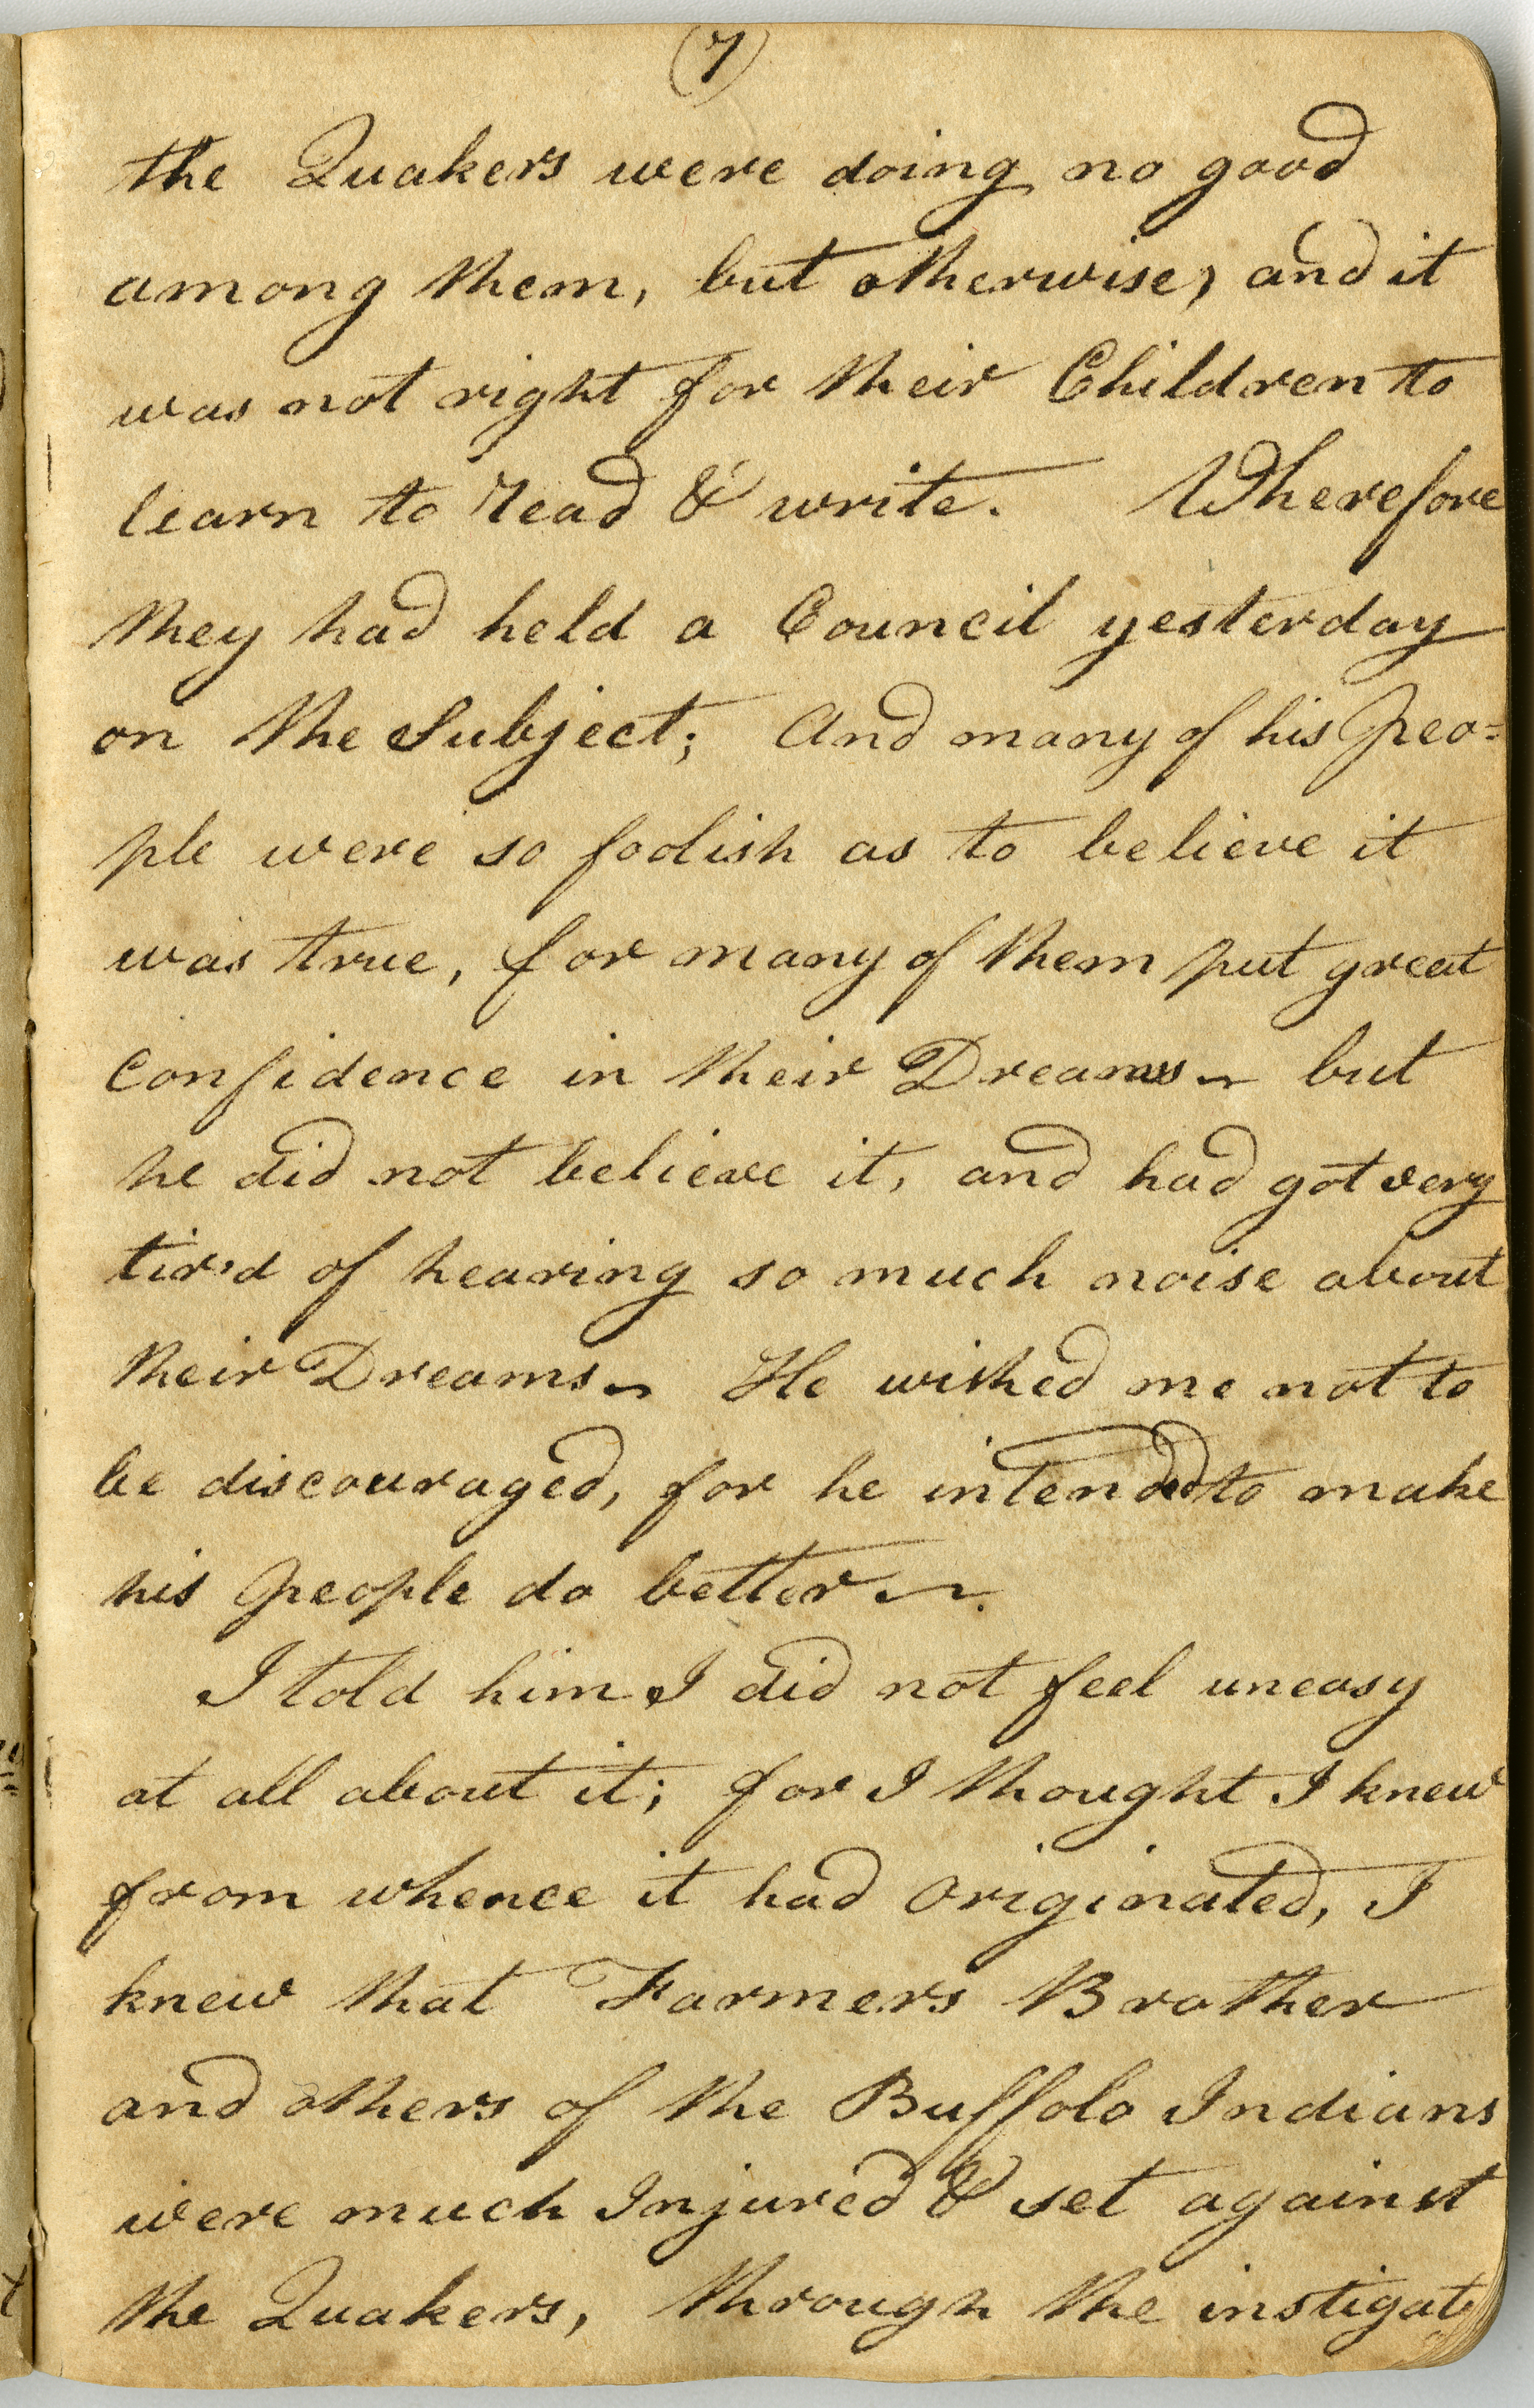 (7)
the Quakers were doing no good
among them, but otherwise, and it
was not right for their Children to
learn to read & write. Wherefore
they had held a Council yesterday
on the Subject; And many of his peo=
ple were so foolish as to believe it
was true, for many of them put great
confidence in their Dreams ~ but
he did not believe it, and had got very
tir'd of hearing so much noise about
their Dreams ~ He wished me not to
be discouraged, for he intended to make
his people do better ~.
I told him I did not feel uneasy
at all about it; for I thought I knew
from whence it had originated, I
knew that Farmers Brother
and others of the Buffolo Indians
were much Injured & set against
the Quakers, through the instigat